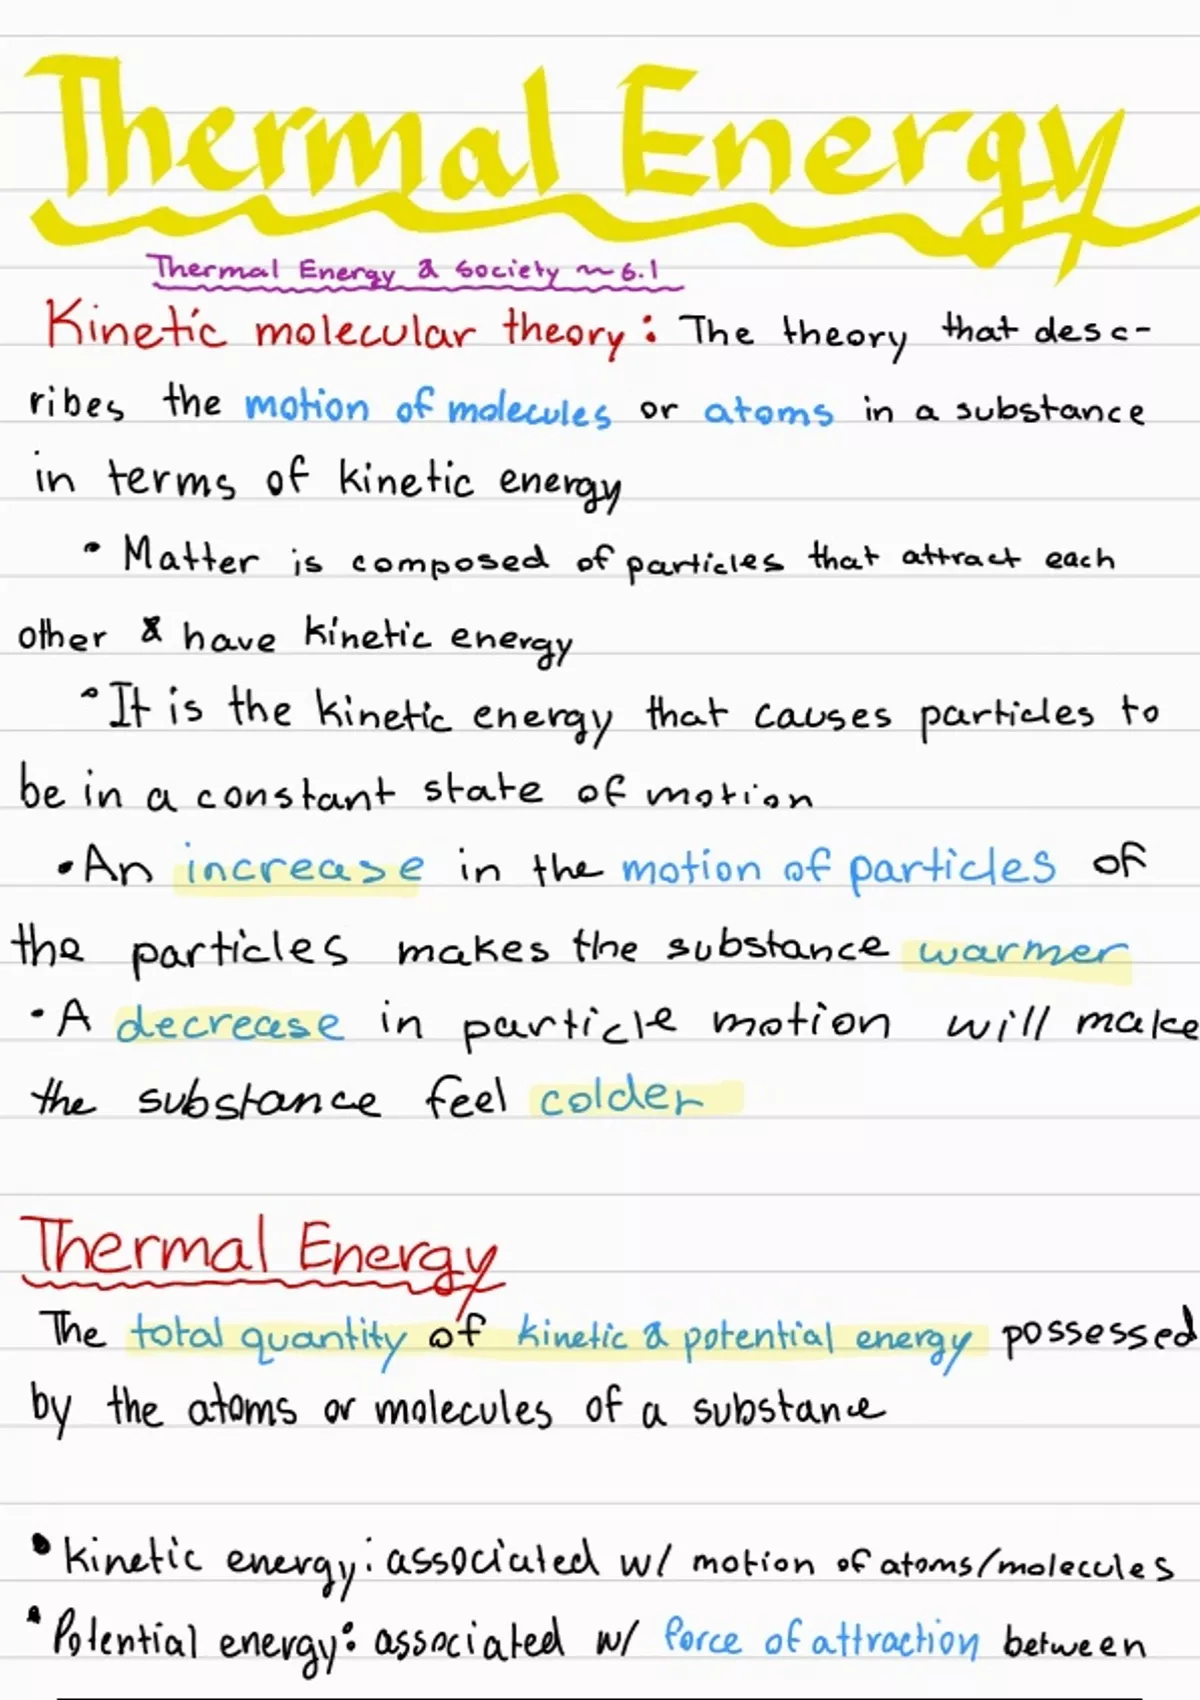 Thermal Energy
Thermal Energy & Society ~ 6.1
Kinetic molecular theory: The theory that desc-
ribes the motion of molecules or atoms in a substance
in terms of kinetic energy
• Matter is composed of particles that attract each
other & have kinetic energy
• It is the kinetic energy that causes particles to
be in a constant state of motion
• An increase in the motion of particles of
the particles makes the substance warmer
• A decrease in particle motion will make
the substance feel colder
Thermal Energy
The total quantity of kinetic & potential energy possessed
by the atoms or molecules of a substance
• Kinetic energy: associated w/ motion of atoms/molecules
• Potential energy: associated w/ force of attraction between